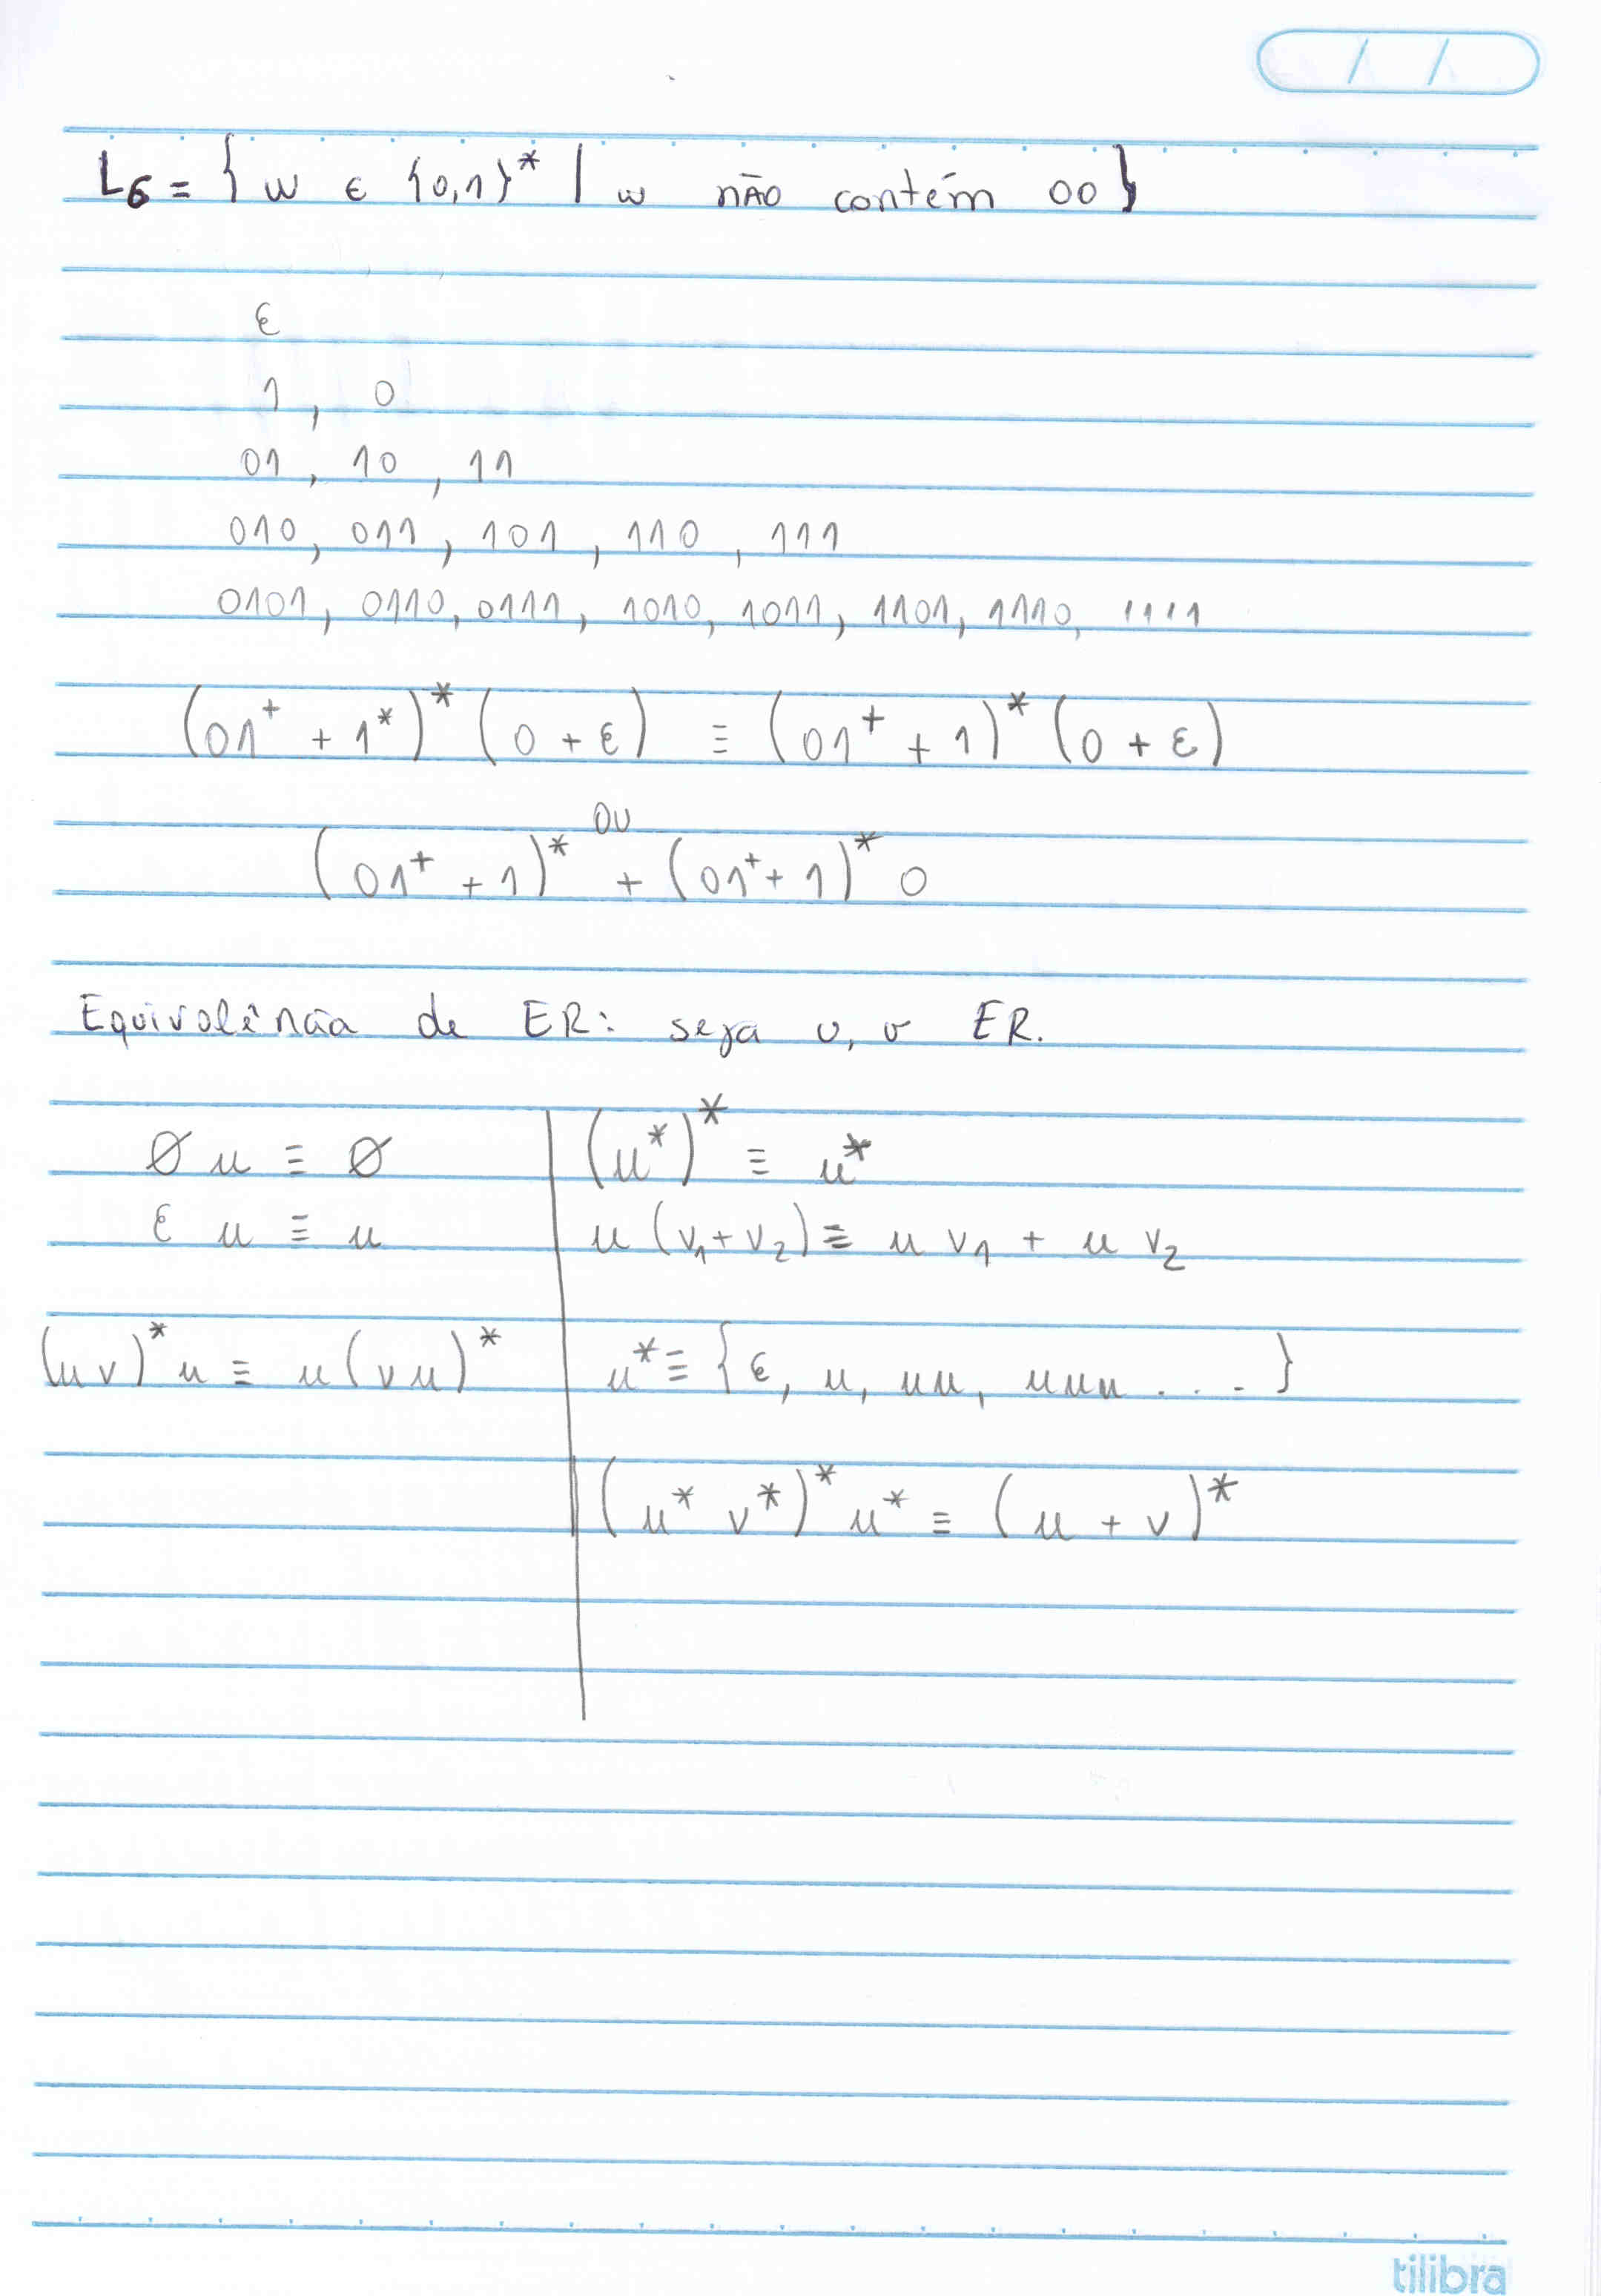 L6 = { w ∈ {0,1}* | w não contém 00 }
ε
1, 0
01, 10, 11
010, 011, 101, 110, 111
0101, 0110, 0111, 1010, 1011, 1101, 1110, 1111
(01⁺ + 1*)* (0 + ε) ≡ (01⁺ + 1)* (0 + ε)
ou
(01⁺ + 1)* + (01⁺ + 1)* 0
Equivalência de ER: seja u, v ER.
∅ u ≡ ∅
ε u ≡ u
(uv)* u ≡ u (vu)*
(u*)* ≡ u*
u (v₁ + v₂) ≡ u v₁ + u v₂
u* ≡ { ε, u, uu, uuu .... }
(u* v*)* u* ≡ (u + v)*
tilibra